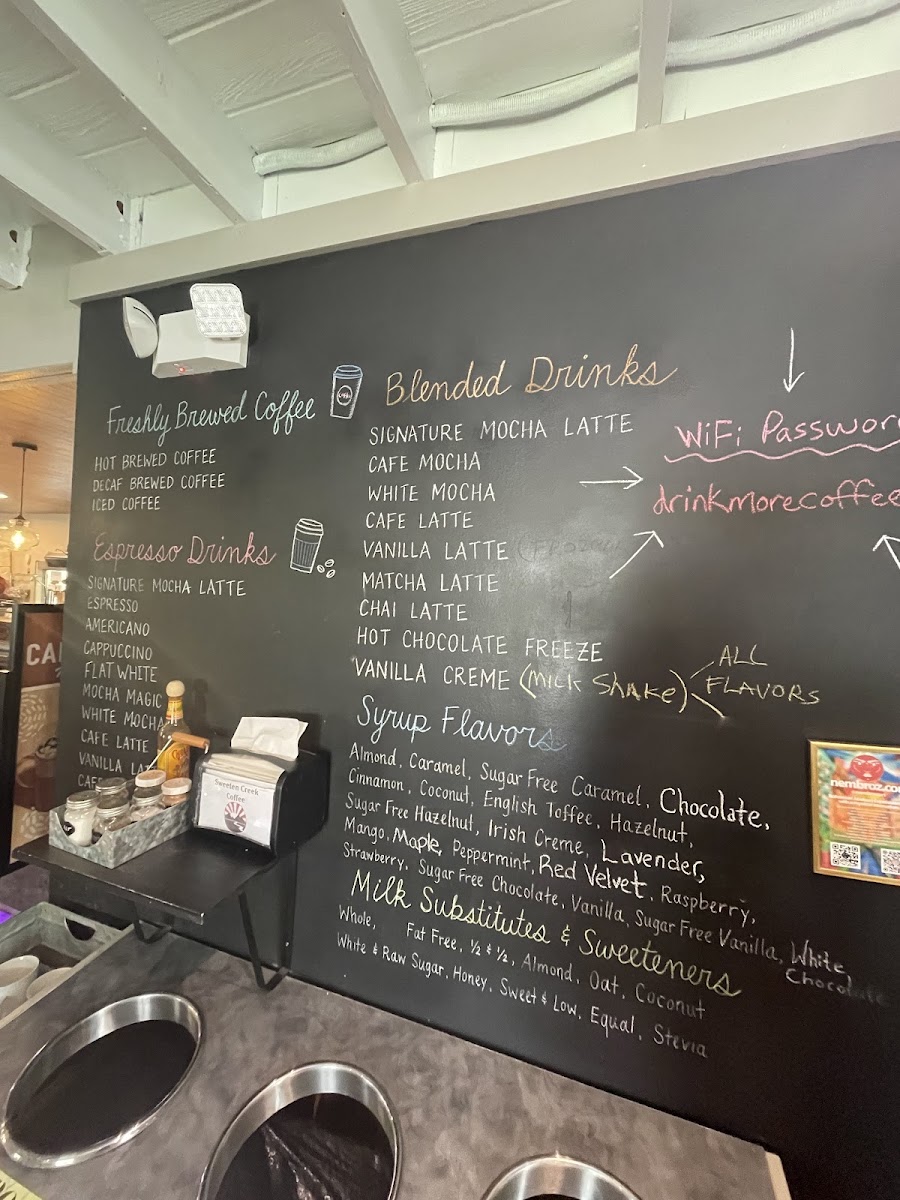 Freshly Brewed Coffee
HOT BREWED COFFEE
DECAF BREWED COFFEE
ICED COFFEE
Espresso Drinks
SIGNATURE MOCHA LATTE
ESPRESSO
AMERICANO
CAPPUCCINO
FLAT WHITE
MOCHA MAGIC
WHITE MOCHA
CAFE LATTE
VANILLA LAT
CAF
Blended Drinks
SIGNATURE MOCHA LATTE
CAFE MOCHA
WHITE MOCHA
CAFE LATTE
VANILLA LATTE
MATCHA LATTE
CHAI LATTE
HOT CHOCOLATE FREEZE
VANILLA CREME (MILK SHAKE) ALL
FLAVORS
Syrup Flavors
Almond, Caramel, Sugar Free Caramel, Chocolate,
Cinnamon, Coconut, English Toffee, Hazelnut,
Sugar Free Hazelnut, Irish Creme, Lavender,
Mango, Maple, Peppermint, Red Velvet, Raspberry,
Strawberry, Sugar Free Chocolate, Vanilla, Sugar Free Vanilla, White
Chocolate
Milk Substitutes & Sweeteners
Whole, Fat Free, ½ & ½, Almond, Oat, Coconut
White & Raw Sugar, Honey, Sweet & Low, Equal, Stevia
WiFi Passwor
drinkmorecoffee
Sweeten Creek
Coffee
CA
nembroz.co